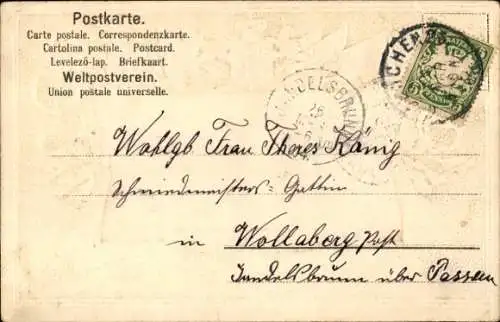 Postkarte.
Carte postale. Correspondenzkarte.
Cartolina postale. Postcard.
Levelező-lap. Briefkaart.
Weltpostverein.
Union postale universelle.
5 5
Wohlgb Frau Theres König
Schmiedmeisters-Gattin
in Wollaberg Post
Jandelsbrunn über Passau